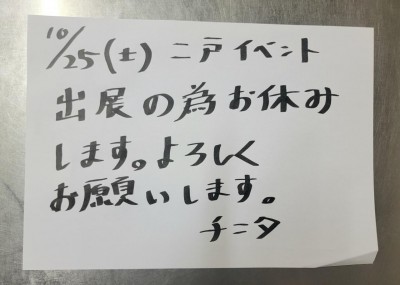 10/25(土)二戸イベント
出展の為お休み
します。よろしく
お願いします。
チニタ